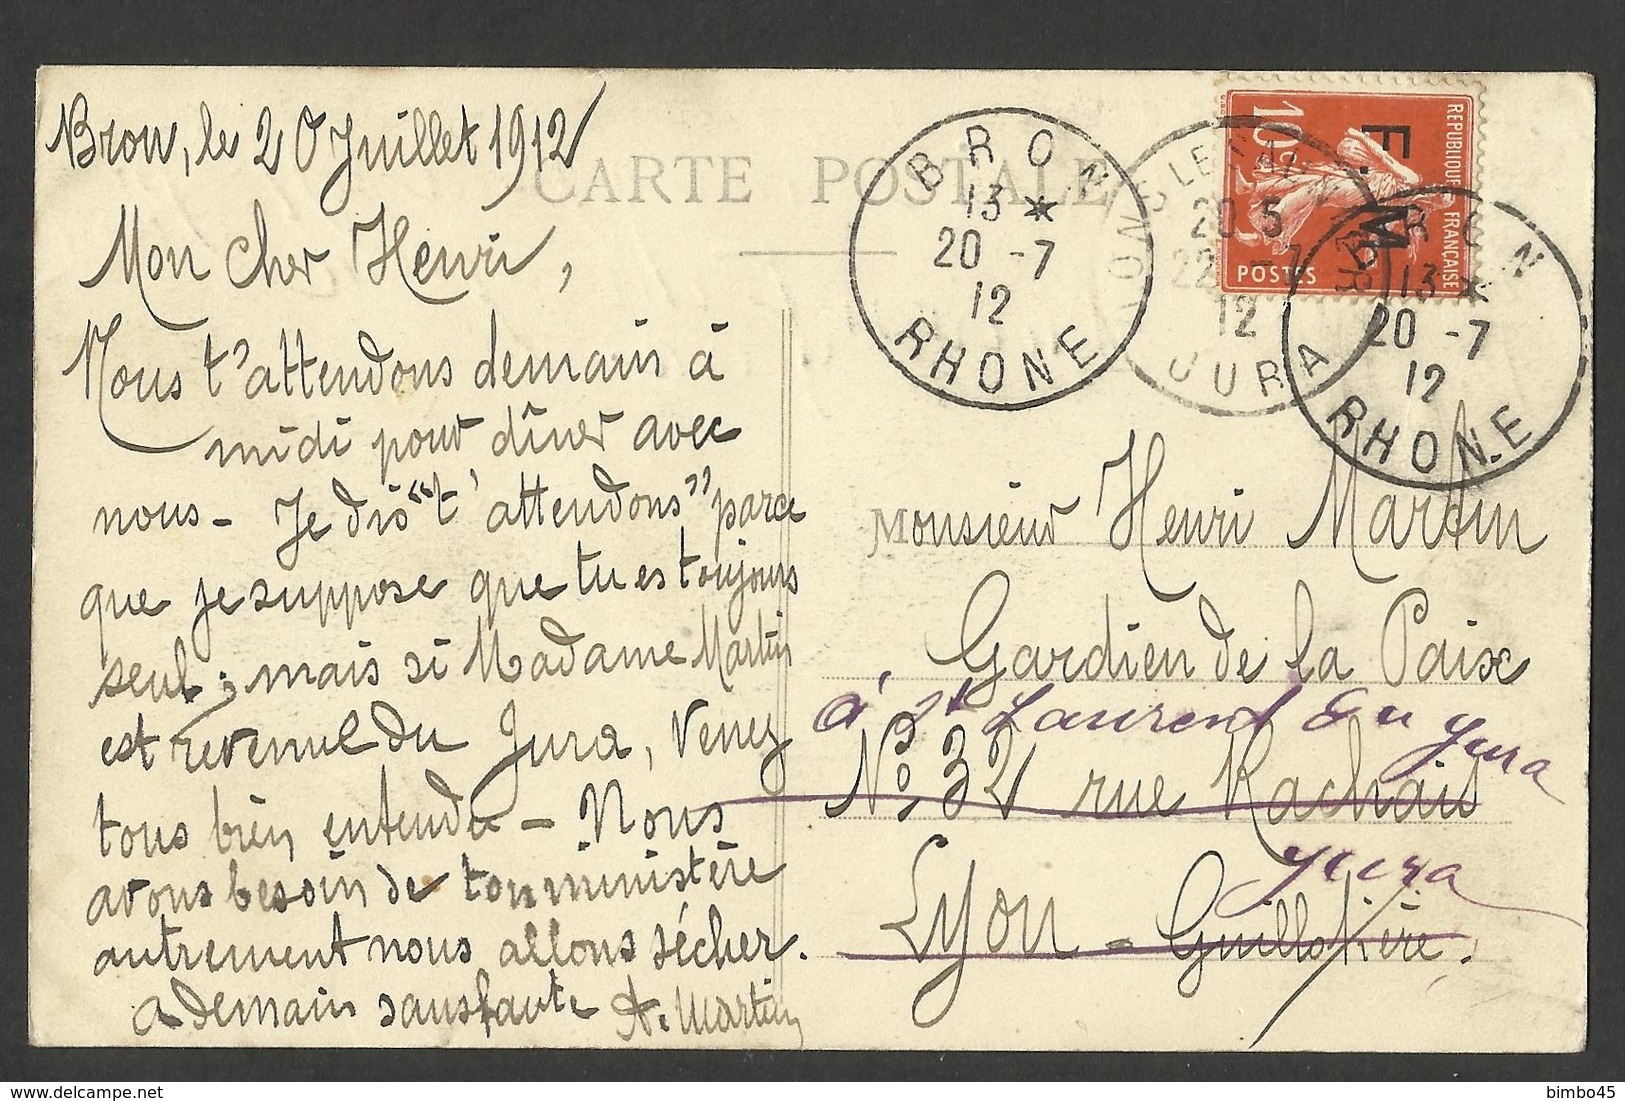 Bron, le 20 Juillet 1912
CARTE POSTALE
Mon cher Henri,
Nous t'attendons demain à
midi pour dîner avec
nous - Je dis "t'attendons" parce
que je suppose que tu es toujours
seul ; mais si Madame Martin
est revenue du Jura, venez
tous bien entendu - Nous
avons besoin de ton ministère
autrement nous allons sécher.
A demain sans faute A. Martin
BRON
13 *
20 -7
12
RHONE
LONS LE SAUNIER
20 5
22 -7
12
JURA
BRON
13 *
20 -7
12
RHONE
10c
F. M.
REPUBLIQUE FRANÇAISE
POSTES
Monsieur Henri Martin
Gardien de la Paix
à St Laurent
Jura
No 32 rue Rachais
Jura
Lyon = Guillotière.
delcampe.net
bimbo45